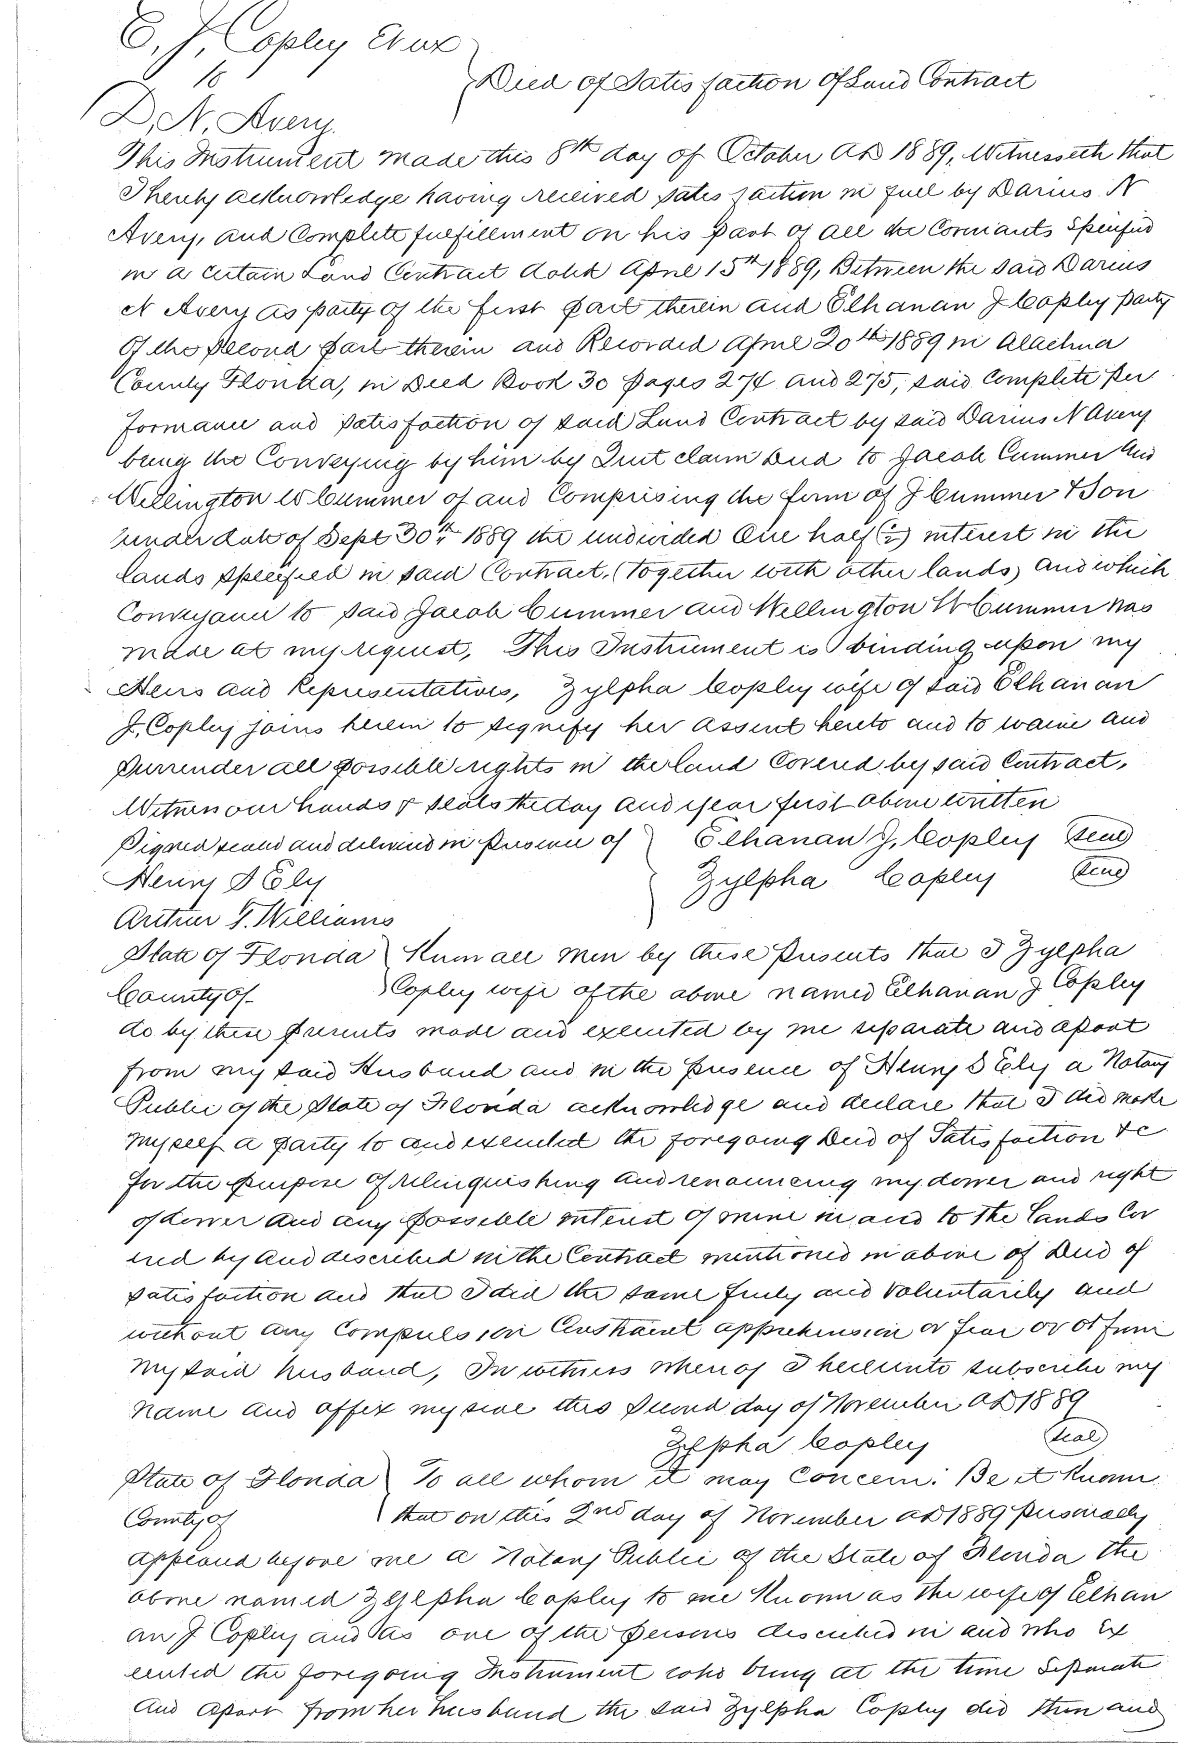 E. J. Copley Et ux
to
Deed of Satisfaction of Land Contract
D. N. Avery.
This Instrument made this 8th day of October AD 1889, Witnesseth that
I hereby acknowledge having received satisfaction in full by Darius N
Avery, and Complete fulfillment on his part of all the Covenants Specified
in a certain Land Contract dated April 15th 1889, Between the said Darius
N Avery as party of the first part therein and Elhanan J Copley party
Of the second part therein and Recorded April 20th 1889 in Alachua
County Florida, in Deed Book 30 pages 274 and 275, said Complete Per
formance and satisfaction of said Land Contract by said Darius N Avery
being the Conveying by him by Quit claim Deed to Jacob Cummer and
Wellington W Cummer of and Comprising the firm of J Cummer & Son
under date of Sept 30th 1889 the undivided One half (½) interest in the
lands specified in said Contract, (together with other lands) and which
Conveyance to said Jacob Cummer and Wellington W Cummer was
made at my request, This Instrument is binding upon my
Heirs and Representatives, Zylpha Copley wife of said Elhanan
J. Copley joins herein to signify her assent hereto and to waive and
surrender all possible rights in the land Covered by said Contract,
Witness our hands & seals the day and year first above written
Signed sealed and delivered in Presence of Elhanan J. Copley Seal
Henry S Ely Zylpha Copley Seal
Arthur T. Williams
State of Florida Know all Men by these Presents that I Zylpha
County of Copley wife of the above named Elhanan J Copley
do by these presents made and executed by me separate and apart
from my said Husband and in the presence of Henry S Ely a Notary
Public of the State of Florida acknowledge and declare that I did make
myself a party to and executed the foregoing Deed of Satisfaction &c
for the purpose of relinquishing and renouncing my dower and right
of dower and any possible interest of mine in and to the lands Cov
ered by and described in the Contract mentioned in above of Deed of
satisfaction and that I did the same freely and Voluntarily and
without any Compulsion Constraint apprehension or fear or of from
my said husband, In witness whereof I hereunto subscribe my
name and affix my seal this Second day of November AD 1889
Zylpha Copley Seal
State of Florida To all whom it may Concern: Be it Known
County of that on this 2nd day of November AD 1889 personally
appeared before me a Notary Public of the State of Florida the
above named Zylpha Copley to me Known as the wife of Elhan
an J Copley and as one of the persons described in and who Ex
ecuted the foregoing Instrument who being at the time Separate
and apart from her husband the said Zylpha Copley did then and